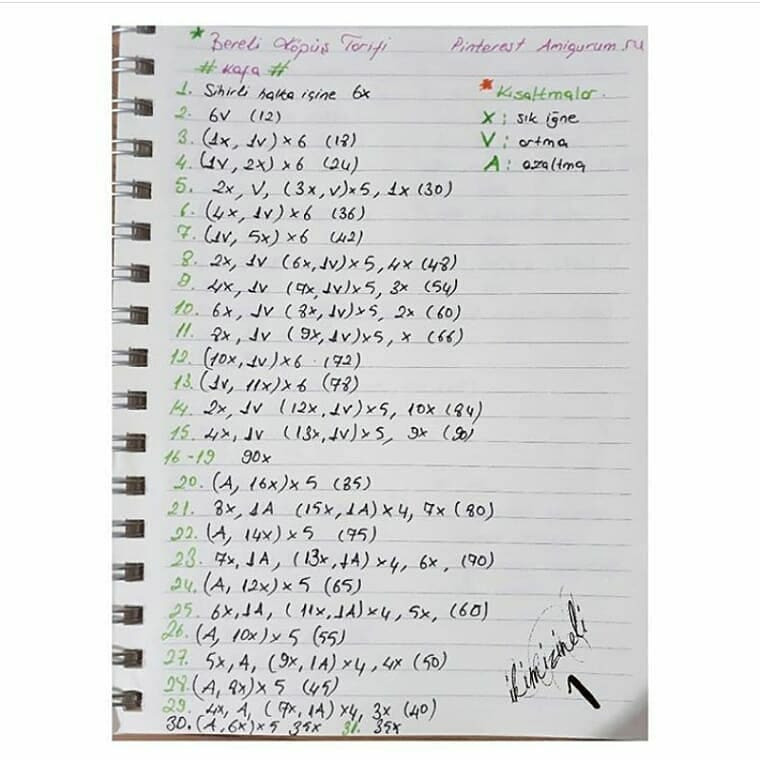 * Bereli Köpüş Tarifi Pinterest Amigurum.ru
# Kafa #
* Kısaltmalar.
X : sık iğne
V : artma
A : azaltma
1. Sihirli halka içine 6x
2. 6v (12)
3. (1x, 1v) x 6 (18)
4. (1v, 2x) x 6 (24)
5. 2x, V, (3x, v)x5, 1x (30)
6. (4x, 1v) x 6 (36)
7. (1v, 5x) x 6 (42)
8. 2x, 1v (6x, 1v)x5, 4x (48)
9. 4x, 1v (7x, 1v)x5, 3x (54)
10. 6x, 1v (8x, 1v)x5, 2x (60)
11. 8x, 1v (9x, 1v)x5, x (66)
12. (10x, 1v) x 6 (72)
13. (1v, 11x) x 6 (78)
14. 2x, 1v (12x, 1v)x5, 10x (84)
15. 4x, 1v (13x, 1v)x5, 9x (90)
16-19 90x
20. (A, 16x) x 5 (85)
21. 8x, 1A (15x, 1A) x 4, 7x (80)
22. (A, 14x) x 5 (75)
23. 7x, 1A, (13x, 1A) x 4, 6x, (70)
24. (A, 12x) x 5 (65)
25. 6x, 1A, (11x, 1A) x 4, 5x, (60)
26. (A, 10x) x 5 (55)
27. 5x, A, (9x, 1A) x 4, 4x (50)
28. (A, 8x) x 5 (45)
29. 4x, A, (7x, 1A) x 4, 3x (40)
30. (A, 6x) x 5 35x 31. 35x
ikimizineli
1